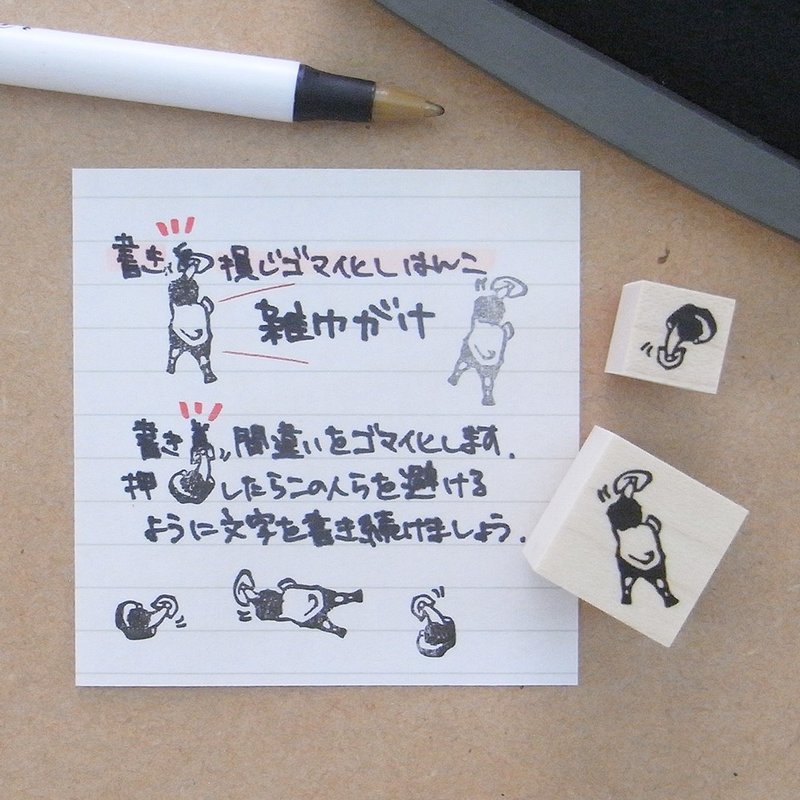 書き損じゴマイ化しはんこ
雑巾がけ
書き間違いをゴマイ化します.
押したらこの人らを避ける
ように文字を書き続けましょう.